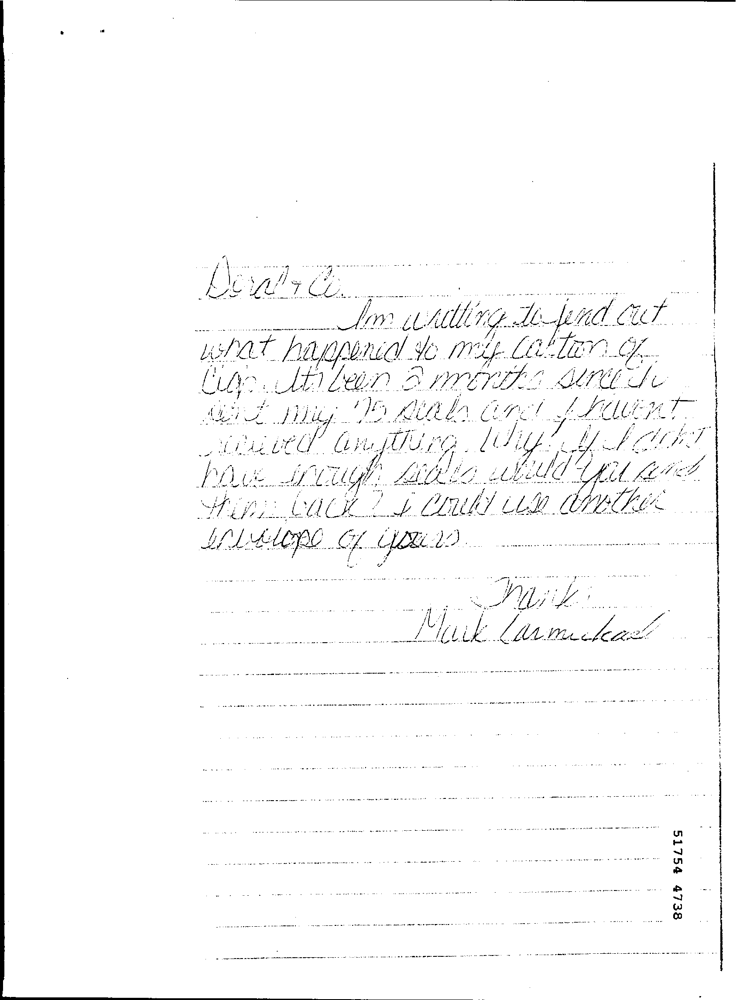 Doral & Co.
I'm writting to find out
what happened to my carton of
Cigs. It's been 2 months since I
sent my 75 seals and I havent
recieved anything. Why? If I didn't
have enough seals would you send
them back? I could use another
envelope of yours.
Thanks
Mark Carmichael
51754 4738